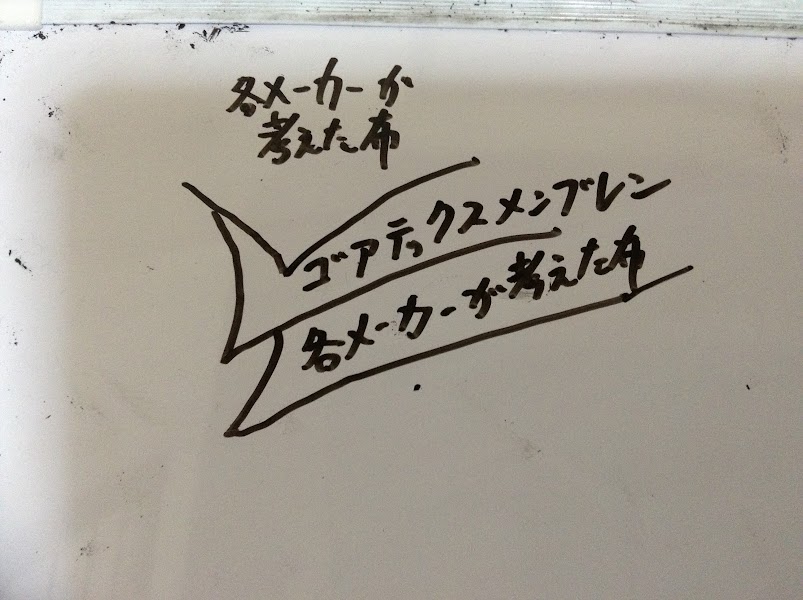 各メーカーが
考えた布
ゴアテックスメンブレン
各メーカーが考えた布